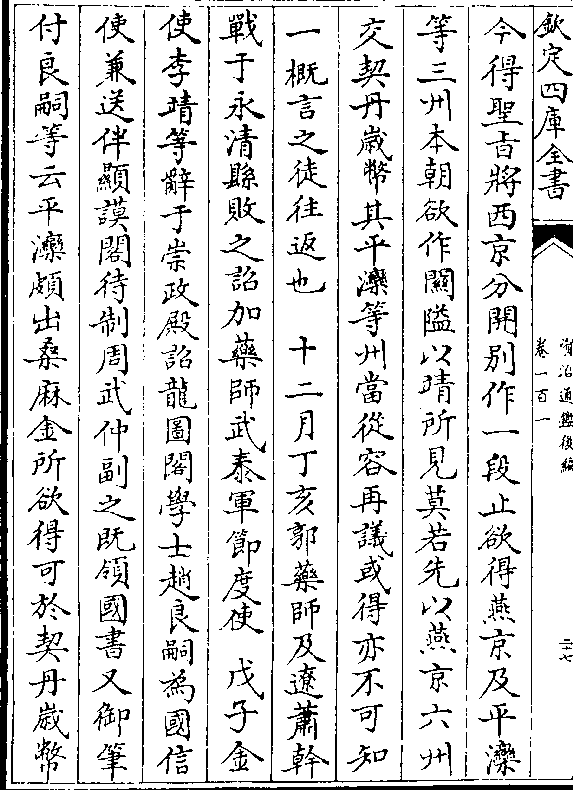 欽定四庫全書
資治通鑑後編
卷一百一
二十七
今得聖旨將西京分開別作一段止欲得燕京及平灤
等三州本朝欲作關隘以靖所見莫若先以燕京六州
交契丹歲幣其平灤等州當從容再議或得亦不可知
一概言之徒往返也　十二月丁亥郭藥師及遼蕭幹
戰于永清縣敗之詔加藥師武泰軍節度使　戊子金
使李靖等辭于崇政殿詔龍圖閣學士趙良嗣為國信
使兼送伴顯謨閣待制周武仲副之既領國書又御筆
付良嗣等云平灤頗出桑麻金所欲得可於契丹歲幣